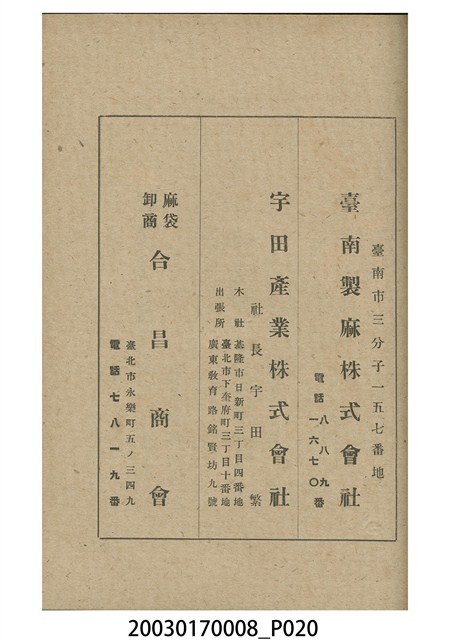 臺南市三分子一五七番地
臺南製麻株式會社
電話 八八九番
一六七〇番
宇田產業株式會社
社長 宇田 繁
木社 基隆市日新町三丁目四番地
出張所 臺北市下奎府町三丁目十番地
廣東敎育路銘賢坊九號
麻袋
卸商
合昌商會
臺北市永樂町五ノ三四九
電話七八一九番
20030170008_P020